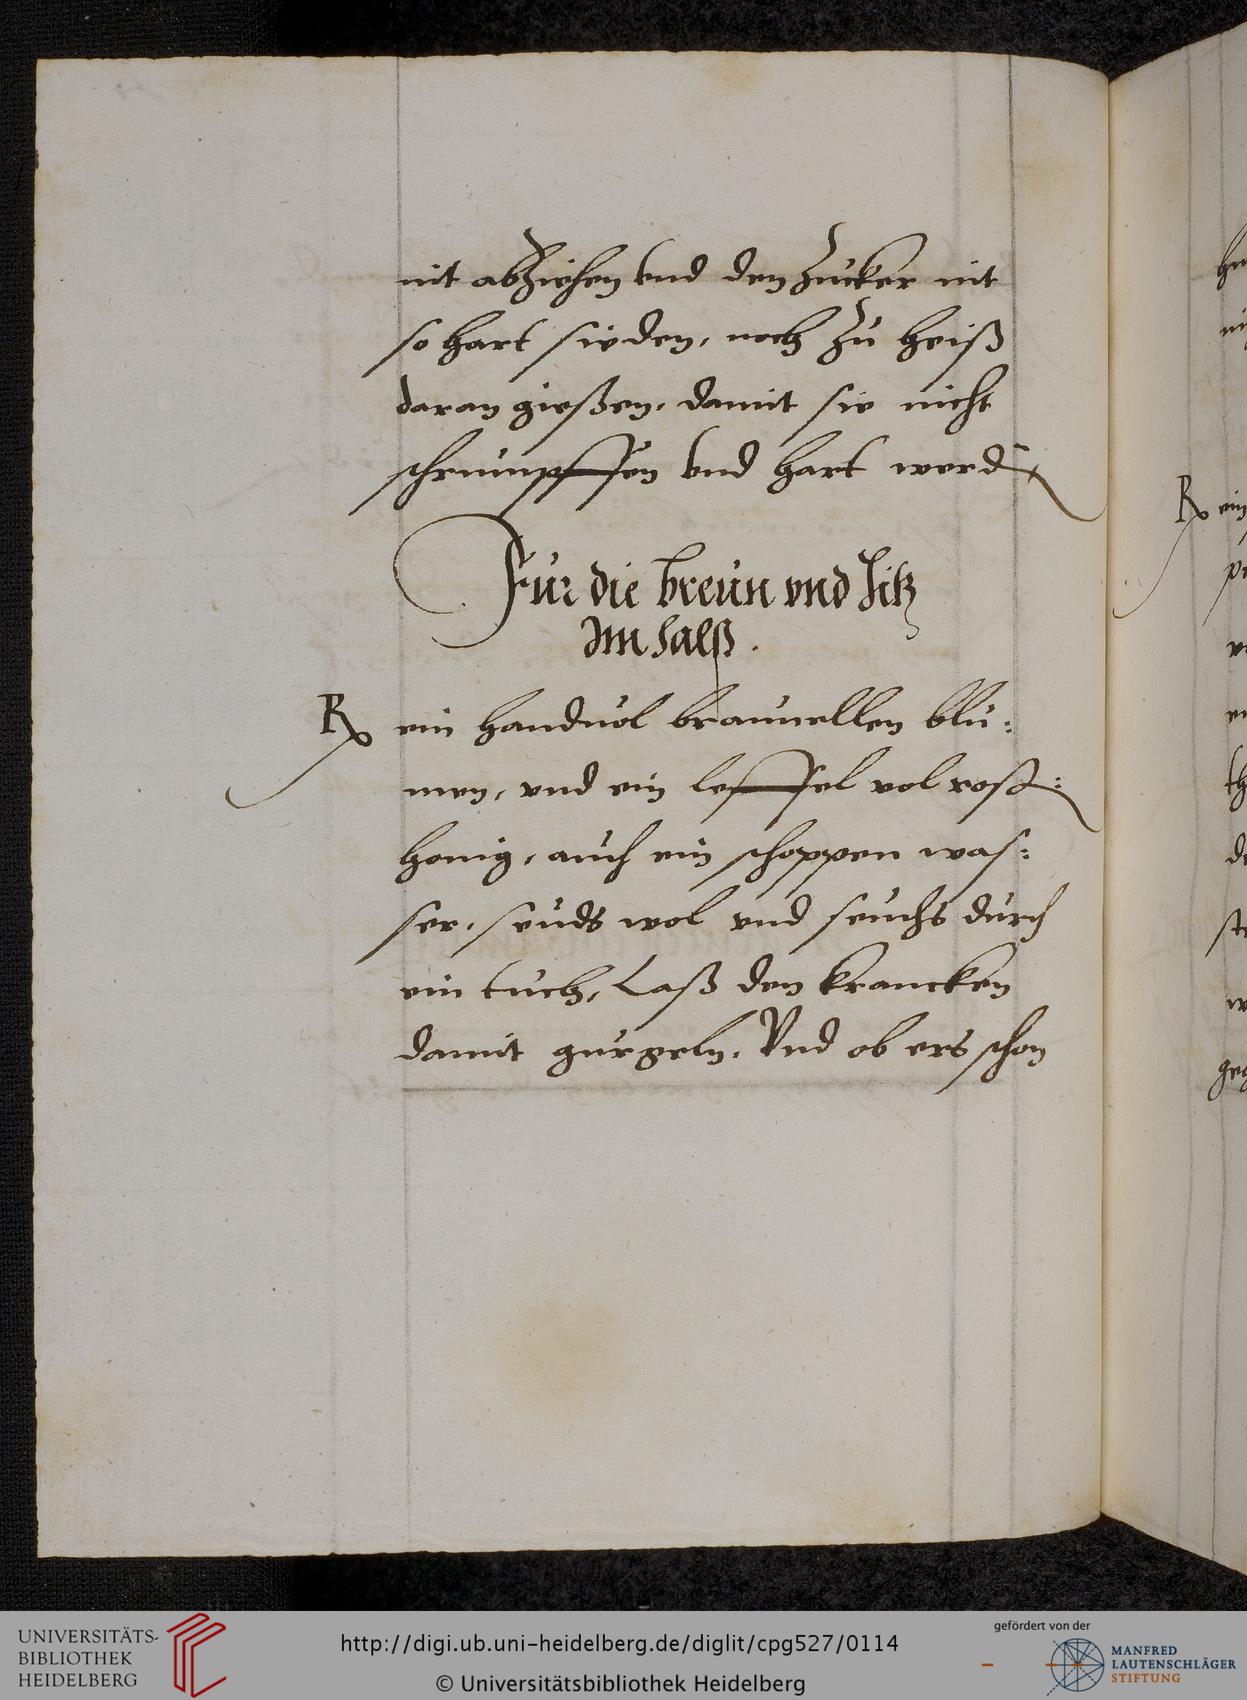 nit abziehen vnd den Zucker nit
so hart sieden, noch zu heiß
daran gießen, damit sie nicht
schrumpffen vnd hart werdē
Für die breün vnd hitz
Im halß.
℞ ein handuol braunellen blu:
men, vnd ein leffel vol roß:
honig, auch ein schoppen was:
ser, seuds wol vnd seuchs durch
ein tuch, Laß den krancken
damit gurgeln, Vnd ob ers schon
℞ ein
UNIVERSITÄTS-
BIBLIOTHEK
HEIDELBERG
http://digi.ub.uni-heidelberg.de/diglit/cpg527/0114
© Universitätsbibliothek Heidelberg
gefördert von der
MANFRED
LAUTENSCHLÄGER
STIFTUNG